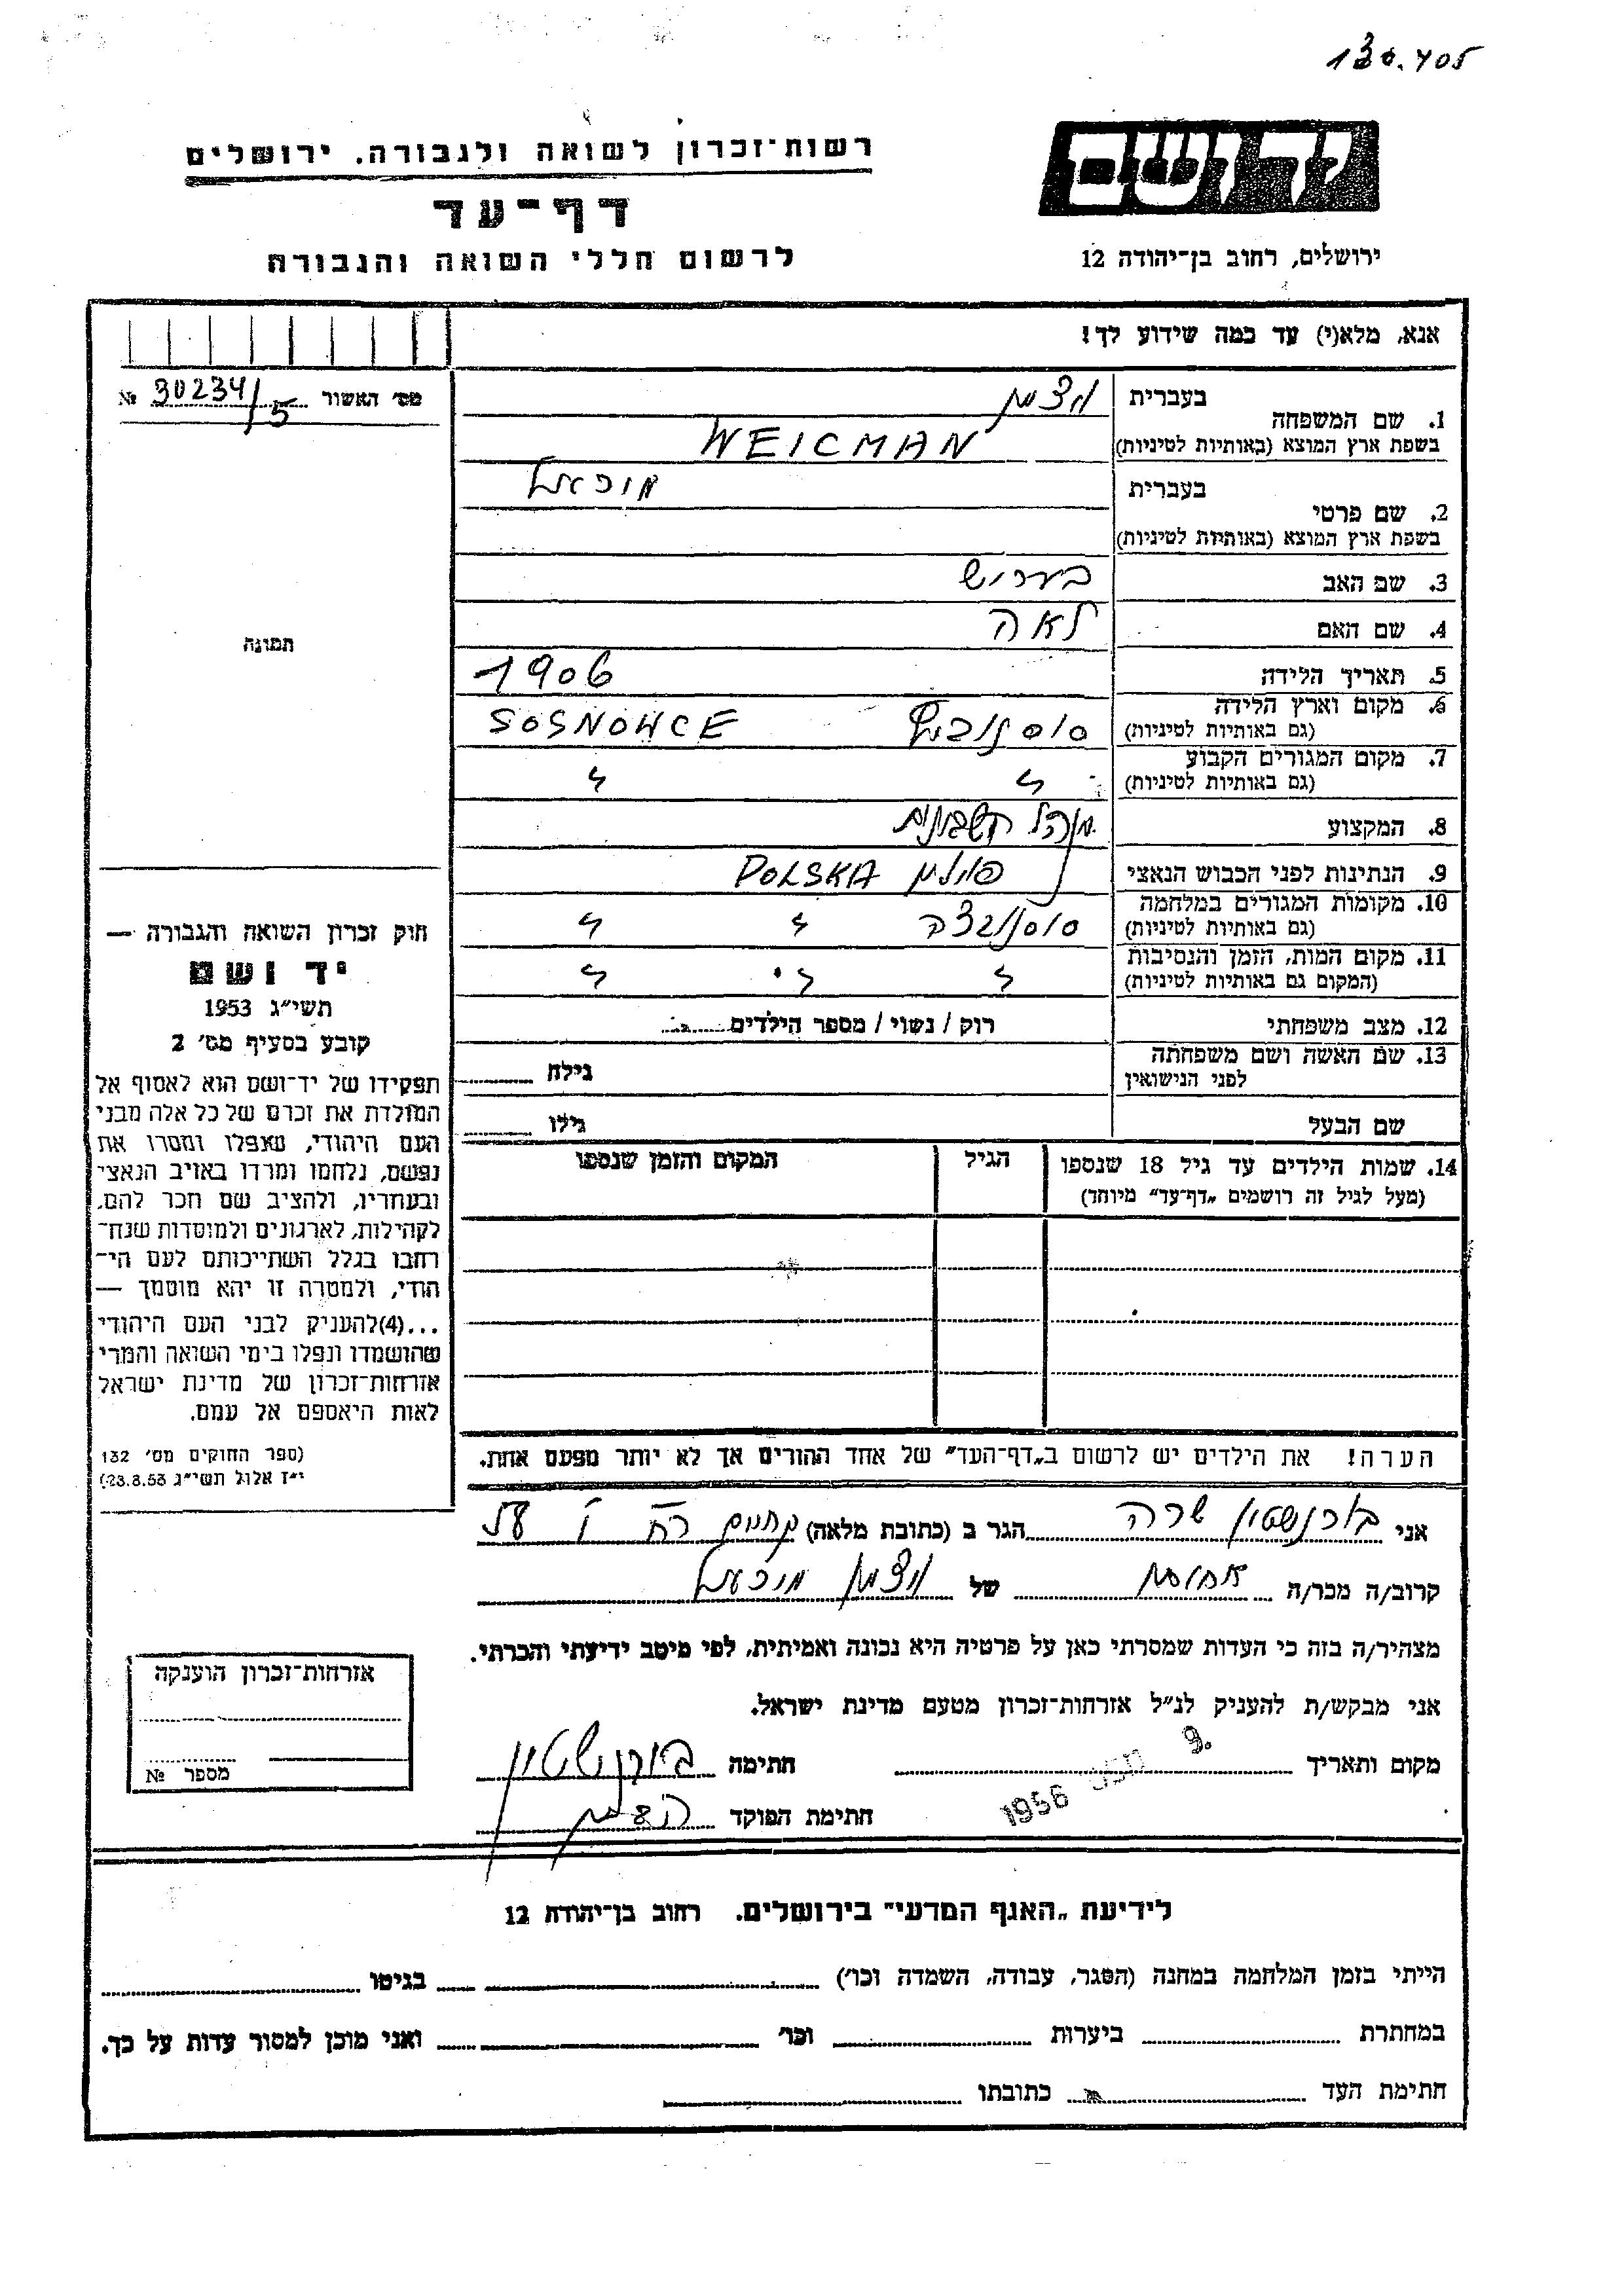 130.405
רשות־זכרון לשואה ולגבורה. ירושלים
יד ושם
דף־עד
לרשום חללי השואה והגבורה
ירושלים, רחוב בן־יהודה 12
אנא, מלא(י) עד כמה שידוע לך!
מס׳ האשור 30234/5 №
1. שם המשפחה
בעברית
ויצמן
בשפת ארץ המוצא (באותיות לטיניות)
WEICMAN
2. שם פרטי
בעברית
מיכאל
בשפת ארץ המוצא (באותיות לטיניות)
3. שם האב
בעריש
4. שם האם
לאה
5. תאריך הלידה
1906
6. מקום וארץ הלידה
(גם באותיות לטיניות)
SOSNOWCE
7. מקום המגורים הקבוע
(גם באותיות לטיניות)
״ ״
8. המקצוע
מנהל חשבונות
9. הנתינות לפני הכבוש הנאצי
פולין POLSKA
10. מקומות המגורים במלחמה
(גם באותיות לטיניות)
סוסנובצה ״ ״
11. מקום המות, הזמן והנסיבות
(המקום גם באותיות לטיניות)
״ ״ ״
12. מצב משפחתי
רוק / נשוי / מספר הילדים
13. שם האשה ושם משפחתה
לפני הנישואין
גילה
שם הבעל
גילו
14. שמות הילדים עד גיל 18 שנספו
(מעל לגיל זה רושמים „דף־עד״ מיוחד)
הגיל
המקום והזמן שנספו
תמונה
חוק זכרון השואה והגבורה —
יד ושם
תשי״ג 1953
קובע בסעיף מס׳ 2
תפקידו של יד־ושם הוא לאסוף אל
המולדת את זכרם של כל אלה מבני
העם היהודי, שנפלו ומסרו את
נפשם, נלחמו ומרדו באויב הנאצי
ובעוזריו, ולהציב שם וזכר להם,
לקהילות, לארגונים ולמוסדות שנח־
רבו בגלל השתייכותם לעם הי־
הודי, ולמטרה זו יהא מוסמך —
...(4)להעניק לבני העם היהודי
שהושמדו ונפלו בימי השואה והמרי
אזרחות־זכרון של מדינת ישראל
לאות היאספם אל עמם.
(ספר החוקים מס׳ 132
י״ז אלול תשי״ג 28.8.53)
הערה! את הילדים יש לרשום ב„דף־העד״ של אחד ההורים אך לא יותר מפעם אחת.
אני בורנשטיין שרה הגר ב (כתובת מלאה)
קרוב/ה מכר/ה אחותו של ויצמן מיכאל
מצהיר/ה בזה כי העדות שמסרתי כאן על פרטיה היא נכונה ואמיתית, לפי מיטב ידיעתי והכרתי.
אני מבקש/ת להעניק לנ״ל אזרחות־זכרון מטעם מדינת ישראל.
מקום ותאריך 1956 9. חתימה בורנשטיין
חתימת הפוקד
אזרחות־זכרון הוענקה
מספר №
לידיעת „האגף המדעי״ בירושלים. רחוב בן־יהודה 12
הייתי בזמן המלחמה במחנה (הסגר, עבודה, השמדה וכו׳) בגיטו
במחתרת ביערות וכו׳ ואני מוכן למסור עדות על כך.
חתימת העד כתובתו